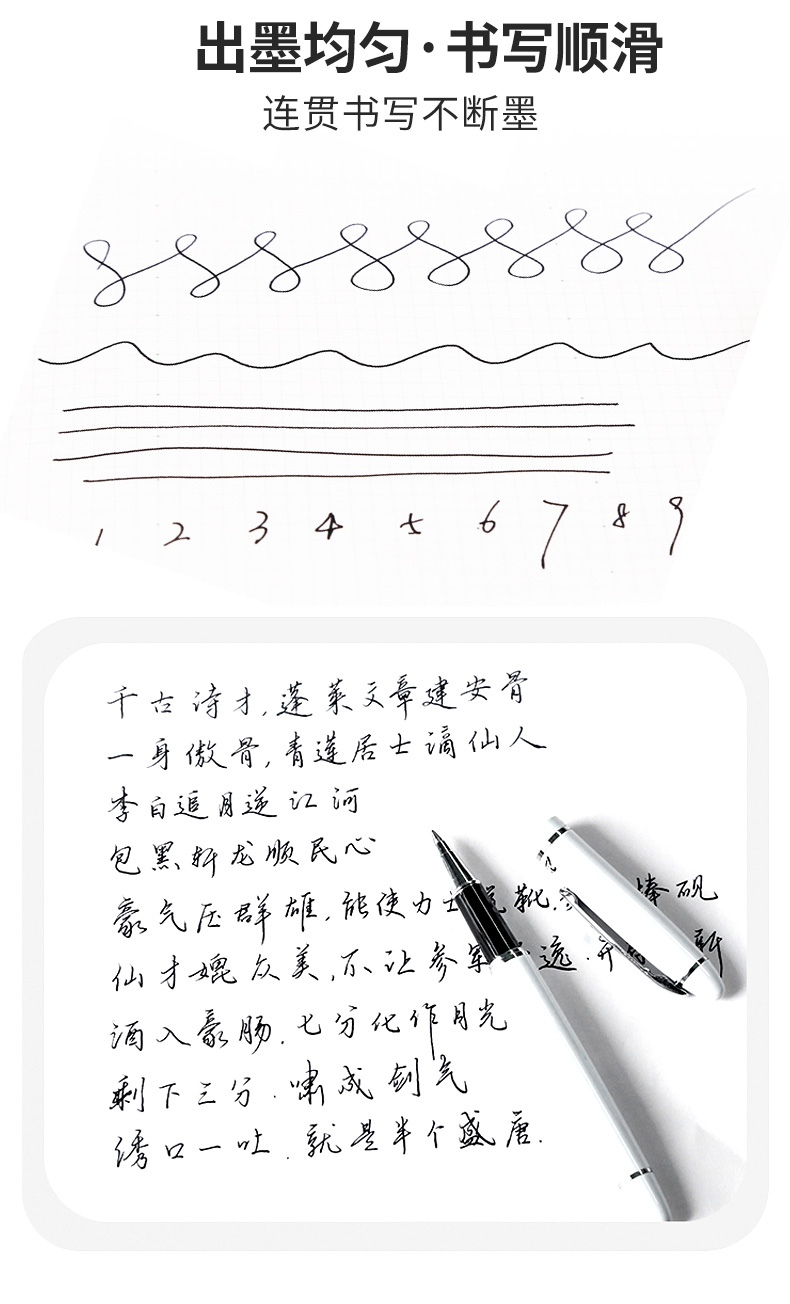 出墨均匀·书写顺滑
连贯书写不断墨
1 2 3 4 5 6 7 8 9
千古诗才,蓬莱文章建安骨
一身傲骨,青莲居士谪仙人
李白追月逆江河
包黑轩龙顺民心
豪气压群雄,能使力士 靴, 捧砚
仙才媲众美,不让参军 逸.
酒入豪肠.七分化作月光
剩下三分.啸成剑气
绣口一吐.就是半个盛唐.